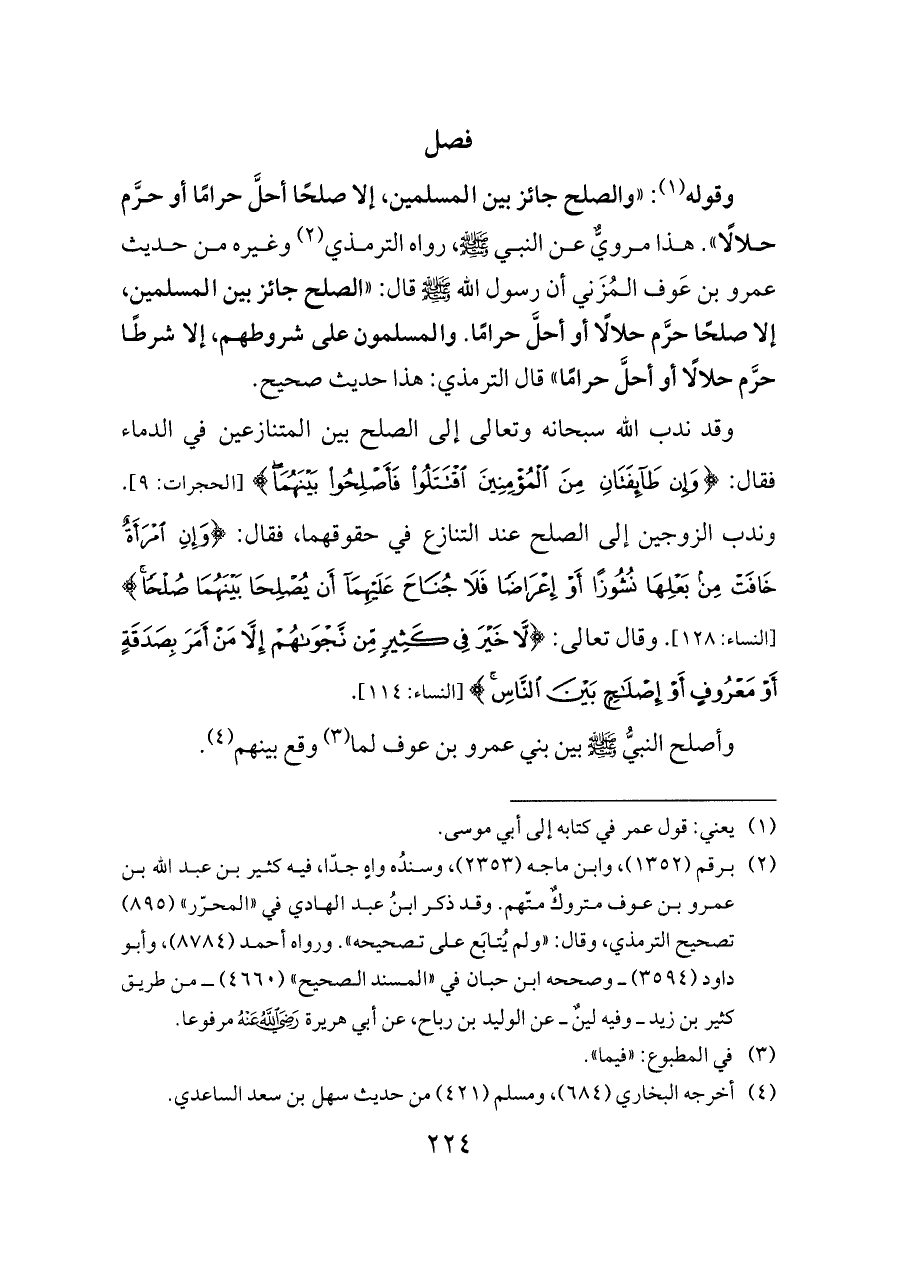 فصل
وقوله(١): «والصلح جائز بين المسلمين، إلا صلحًا أحلَّ حرامًا أو حرَّم
حلالًا». هذا مرويٌّ عن النبي ﷺ، رواه الترمذي(٢) وغيره من حديث
عمرو بن عَوف المُزَني أن رسول الله ﷺ قال: «الصلح جائز بين المسلمين،
إلا صلحًا حرَّم حلالًا أو أحلَّ حرامًا. والمسلمون على شروطهم، إلا شرطًا
حرَّم حلالًا أو أحلَّ حرامًا» قال الترمذي: هذا حديث صحيح.
وقد ندب الله سبحانه وتعالى إلى الصلح بين المتنازعين في الدماء
فقال: ﴿وَإِن طَآئِفَتَانِ مِنَ ٱلْمُؤْمِنِينَ ٱقْتَتَلُوا۟ فَأَصْلِحُوا۟ بَيْنَهُمَا ۖ﴾ [الحجرات: ٩].
وندب الزوجين إلى الصلح عند التنازع في حقوقهما، فقال: ﴿وَإِنِ ٱمْرَأَةٌ
خَافَتْ مِنۢ بَعْلِهَا نُشُوزًا أَوْ إِعْرَاضًا فَلَا جُنَاحَ عَلَيْهِمَآ أَن يُصْلِحَا بَيْنَهُمَا صُلْحًا ۚ﴾
[النساء: ١٢٨]. وقال تعالى: ﴿لَّا خَيْرَ فِى كَثِيرٍ مِّن نَّجْوَىٰهُمْ إِلَّا مَنْ أَمَرَ بِصَدَقَةٍ
أَوْ مَعْرُوفٍ أَوْ إِصْلَٰحٍۭ بَيْنَ ٱلنَّاسِ ۚ﴾ [النساء: ١١٤].
وأصلح النبيُّ ﷺ بين بني عمرو بن عوف لما(٣) وقع بينهم(٤).
(١) يعني: قول عمر في كتابه إلى أبي موسى.
(٢) برقم (١٣٥٢)، وابن ماجه (٢٣٥٣)، وسندُه واهٍ جدًّا، فيه كثير بن عبد الله بن
عمرو بن عوف متروكٌ متّهم. وقد ذكر ابنُ عبد الهادي في «المحرّر» (٨٩٥)
تصحيح الترمذي، وقال: «ولم يُتابَع على تصحيحه». ورواه أحمد (٨٧٨٤)، وأبو
داود (٣٥٩٤) ـ وصححه ابن حبان في «المسند الصحيح» (٤٦٦٠) ـ من طريق
كثير بن زيد ـ وفيه لينٌ ـ عن الوليد بن رباح، عن أبي هريرة رَضِيَ اللَّهُ عَنْهُ مرفوعا.
(٣) في المطبوع: «فيما».
(٤) أخرجه البخاري (٦٨٤)، ومسلم (٤٢١) من حديث سهل بن سعد الساعدي.
٢٢٤